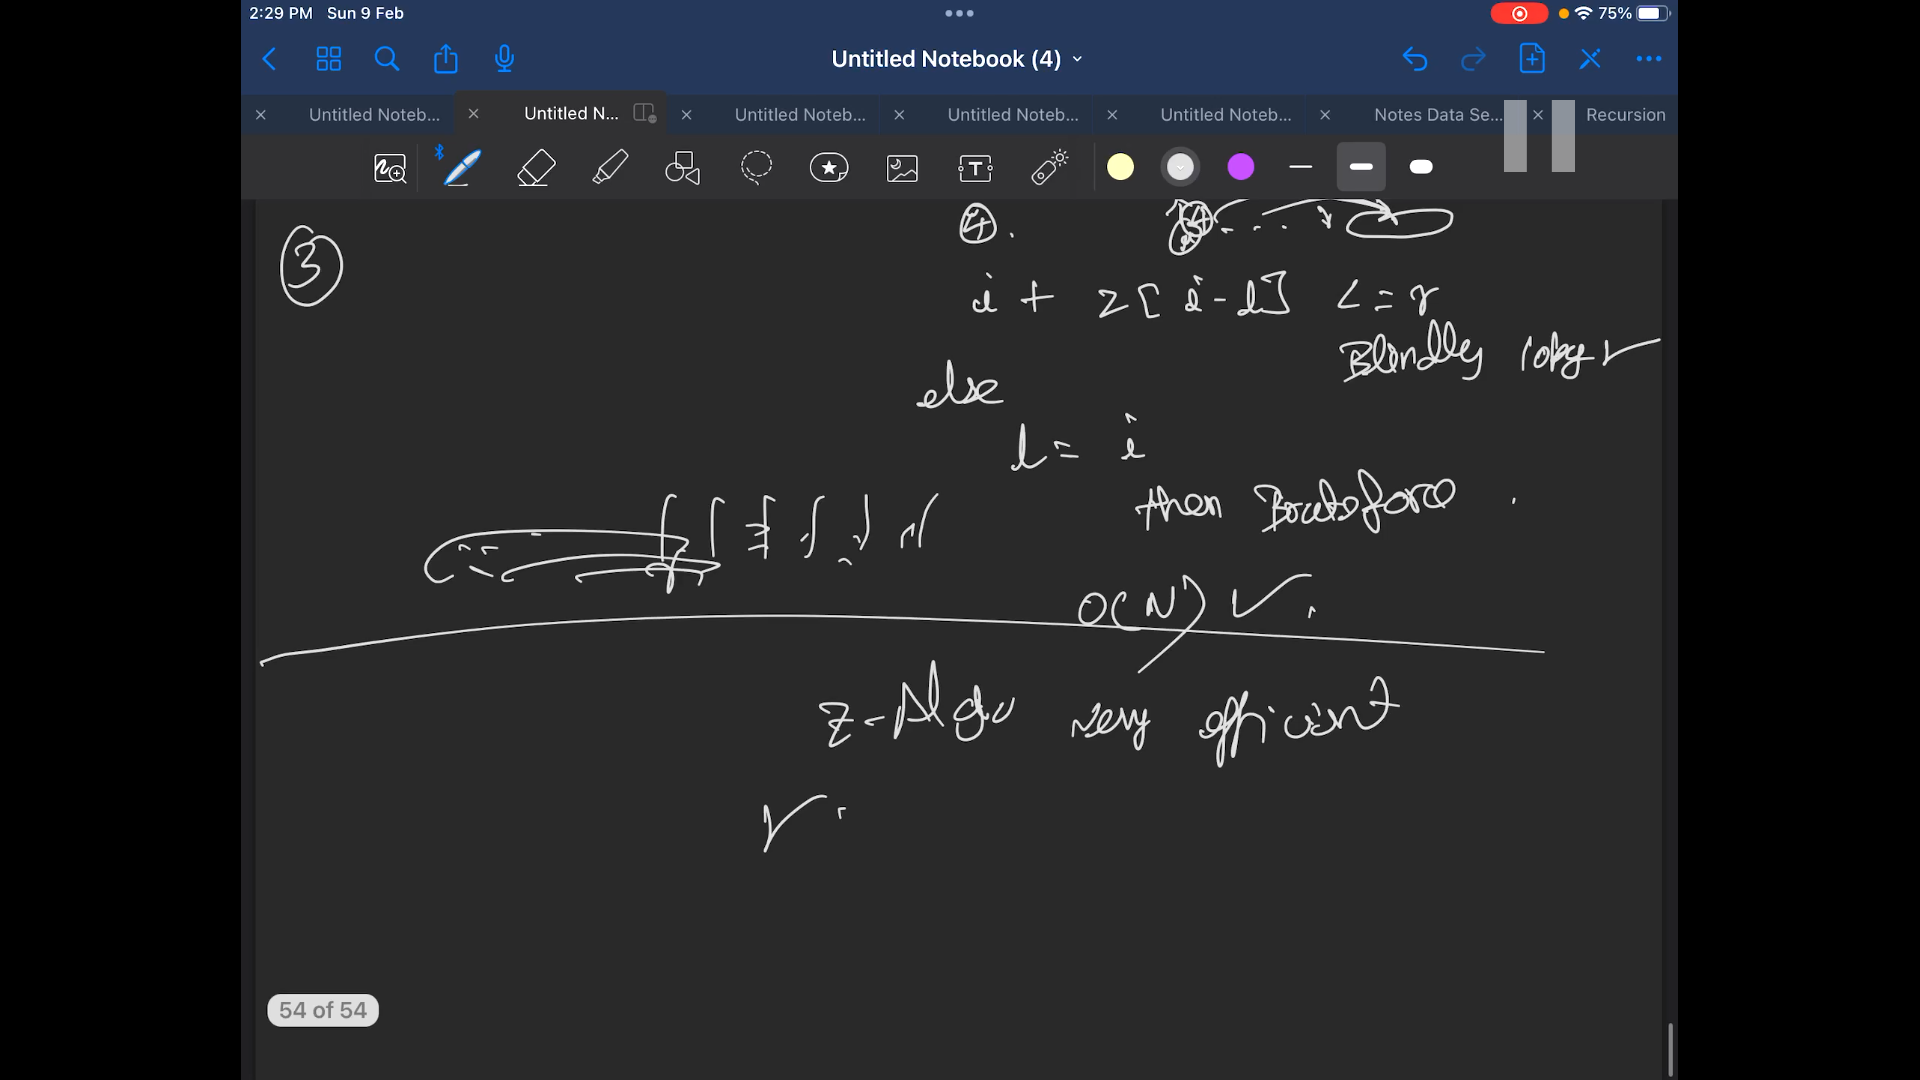 2:29 PM Sun 9 Feb
75%
Untitled Notebook (4)
Untitled Noteb... Untitled N... Untitled Noteb... Untitled Noteb... Untitled Noteb... Notes Data Se... Recursion
3
4.
i + z[i-l] <= r
Blindly copy
else
l = i
then Bruteforce.
O(N)
z-Algo very efficient
54 of 54